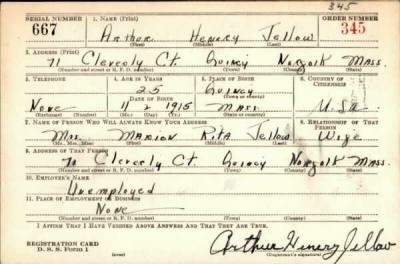 345
SERIAL NUMBER 1. NAME (Print) ORDER NUMBER
667 Arthur Henery Jellow 345
(First) (Middle) (Last)
2. ADDRESS (Print)
71 Cleverly Ct. Quincy Norfolk Mass.
(Number and street or R. F. D. number) (Town) (County) (State)
3. TELEPHONE 4. AGE IN YEARS 5. PLACE OF BIRTH 6. COUNTRY OF CITIZENSHIP
25 Quincy
DATE OF BIRTH (Town or county)
None 11 2 1915 Mass. U.S.A
(Exchange) (Number) (Mo.) (Day) (Yr.) (State or country)
7. NAME OF PERSON WHO WILL ALWAYS KNOW YOUR ADDRESS 8. RELATIONSHIP OF THAT PERSON
Mrs. Marion Rita Jellow Wife
(Mr., Mrs., Miss) (First) (Middle) (Last)
9. ADDRESS OF THAT PERSON
71 Cleverly Ct. Quincy Norfolk Mass.
(Number and street or R. F. D. number) (Town) (County) (State)
10. EMPLOYER'S NAME
Unemployed
11. PLACE OF EMPLOYMENT OR BUSINESS
None
(Number and street or R. F. D. number) (Town) (County) (State)
I AFFIRM THAT I HAVE VERIFIED ABOVE ANSWERS AND THAT THEY ARE TRUE.
REGISTRATION CARD
D. S. S. Form 1 Arthur Henery Jellow
(Registrant's signature)